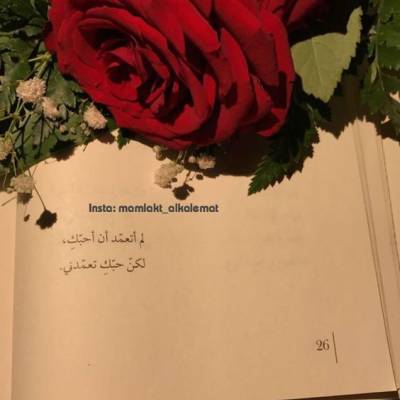 Insta: mamlakt_alkalemat
لم أتعمّد أن أحبّكِ،
لكنّ حبّكِ تعمّدني.
26